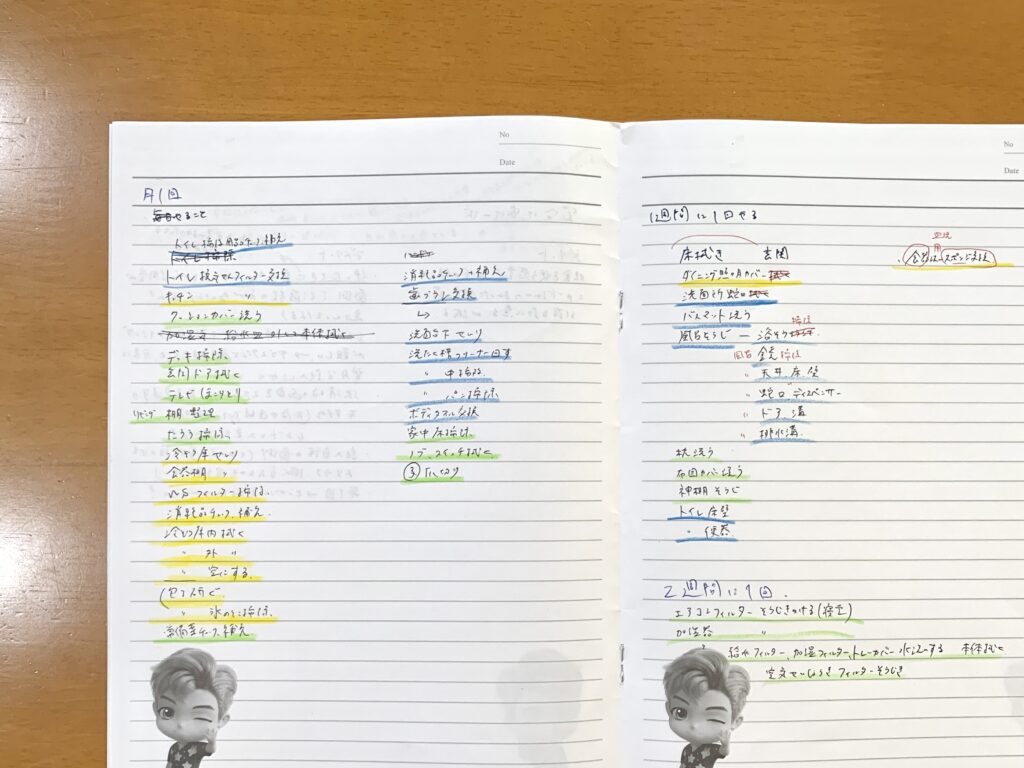 No
Date
月1回
やること
トイレ掃除用品チェック、補充
トイレ換気せんフィルター交換
キッチン 〃
クッションカバー洗う
デッキ掃除
玄関ドア拭く
テレビほこりとり
リビング 棚整理
たたき掃除
冷ぞう庫せいり
食器棚 〃
フィルター掃除
消耗品チェック、補充
冷ぞう庫内拭く
〃 外 〃
〃 空にする
包丁研ぐ
〃 氷のとこ掃除
常備薬チェック、補充
消耗品チェック、補充
歯ブラシ交換
洗面台下せいり
洗たく槽クリーナー回す
〃 中掃除
〃 パン掃除
ボディタオル交換
家中床掃除
ドア、スイッチ拭く
No
Date
1週間に1回やる
床拭き 玄関
ダイニング照明カバー
洗面所蛇口
バスマット洗う
風呂そうじ — 浴そう掃除
風呂 全部掃除
〃 天井、床、壁
〃 蛇口、ディスペンサー
〃 ドア、溝
〃 排水溝
枕洗う
布団カバー洗う
神棚そうじ
トイレ床壁
〃 便器
食器用スポンジ交換
2週間に1回
エアコンフィルターそうじきかける(寝室)
加湿器 〃
給水フィルター、加湿フィルター、トレーカバー水洗いする 本体拭く
空気せいじょうきフィルターそうじき